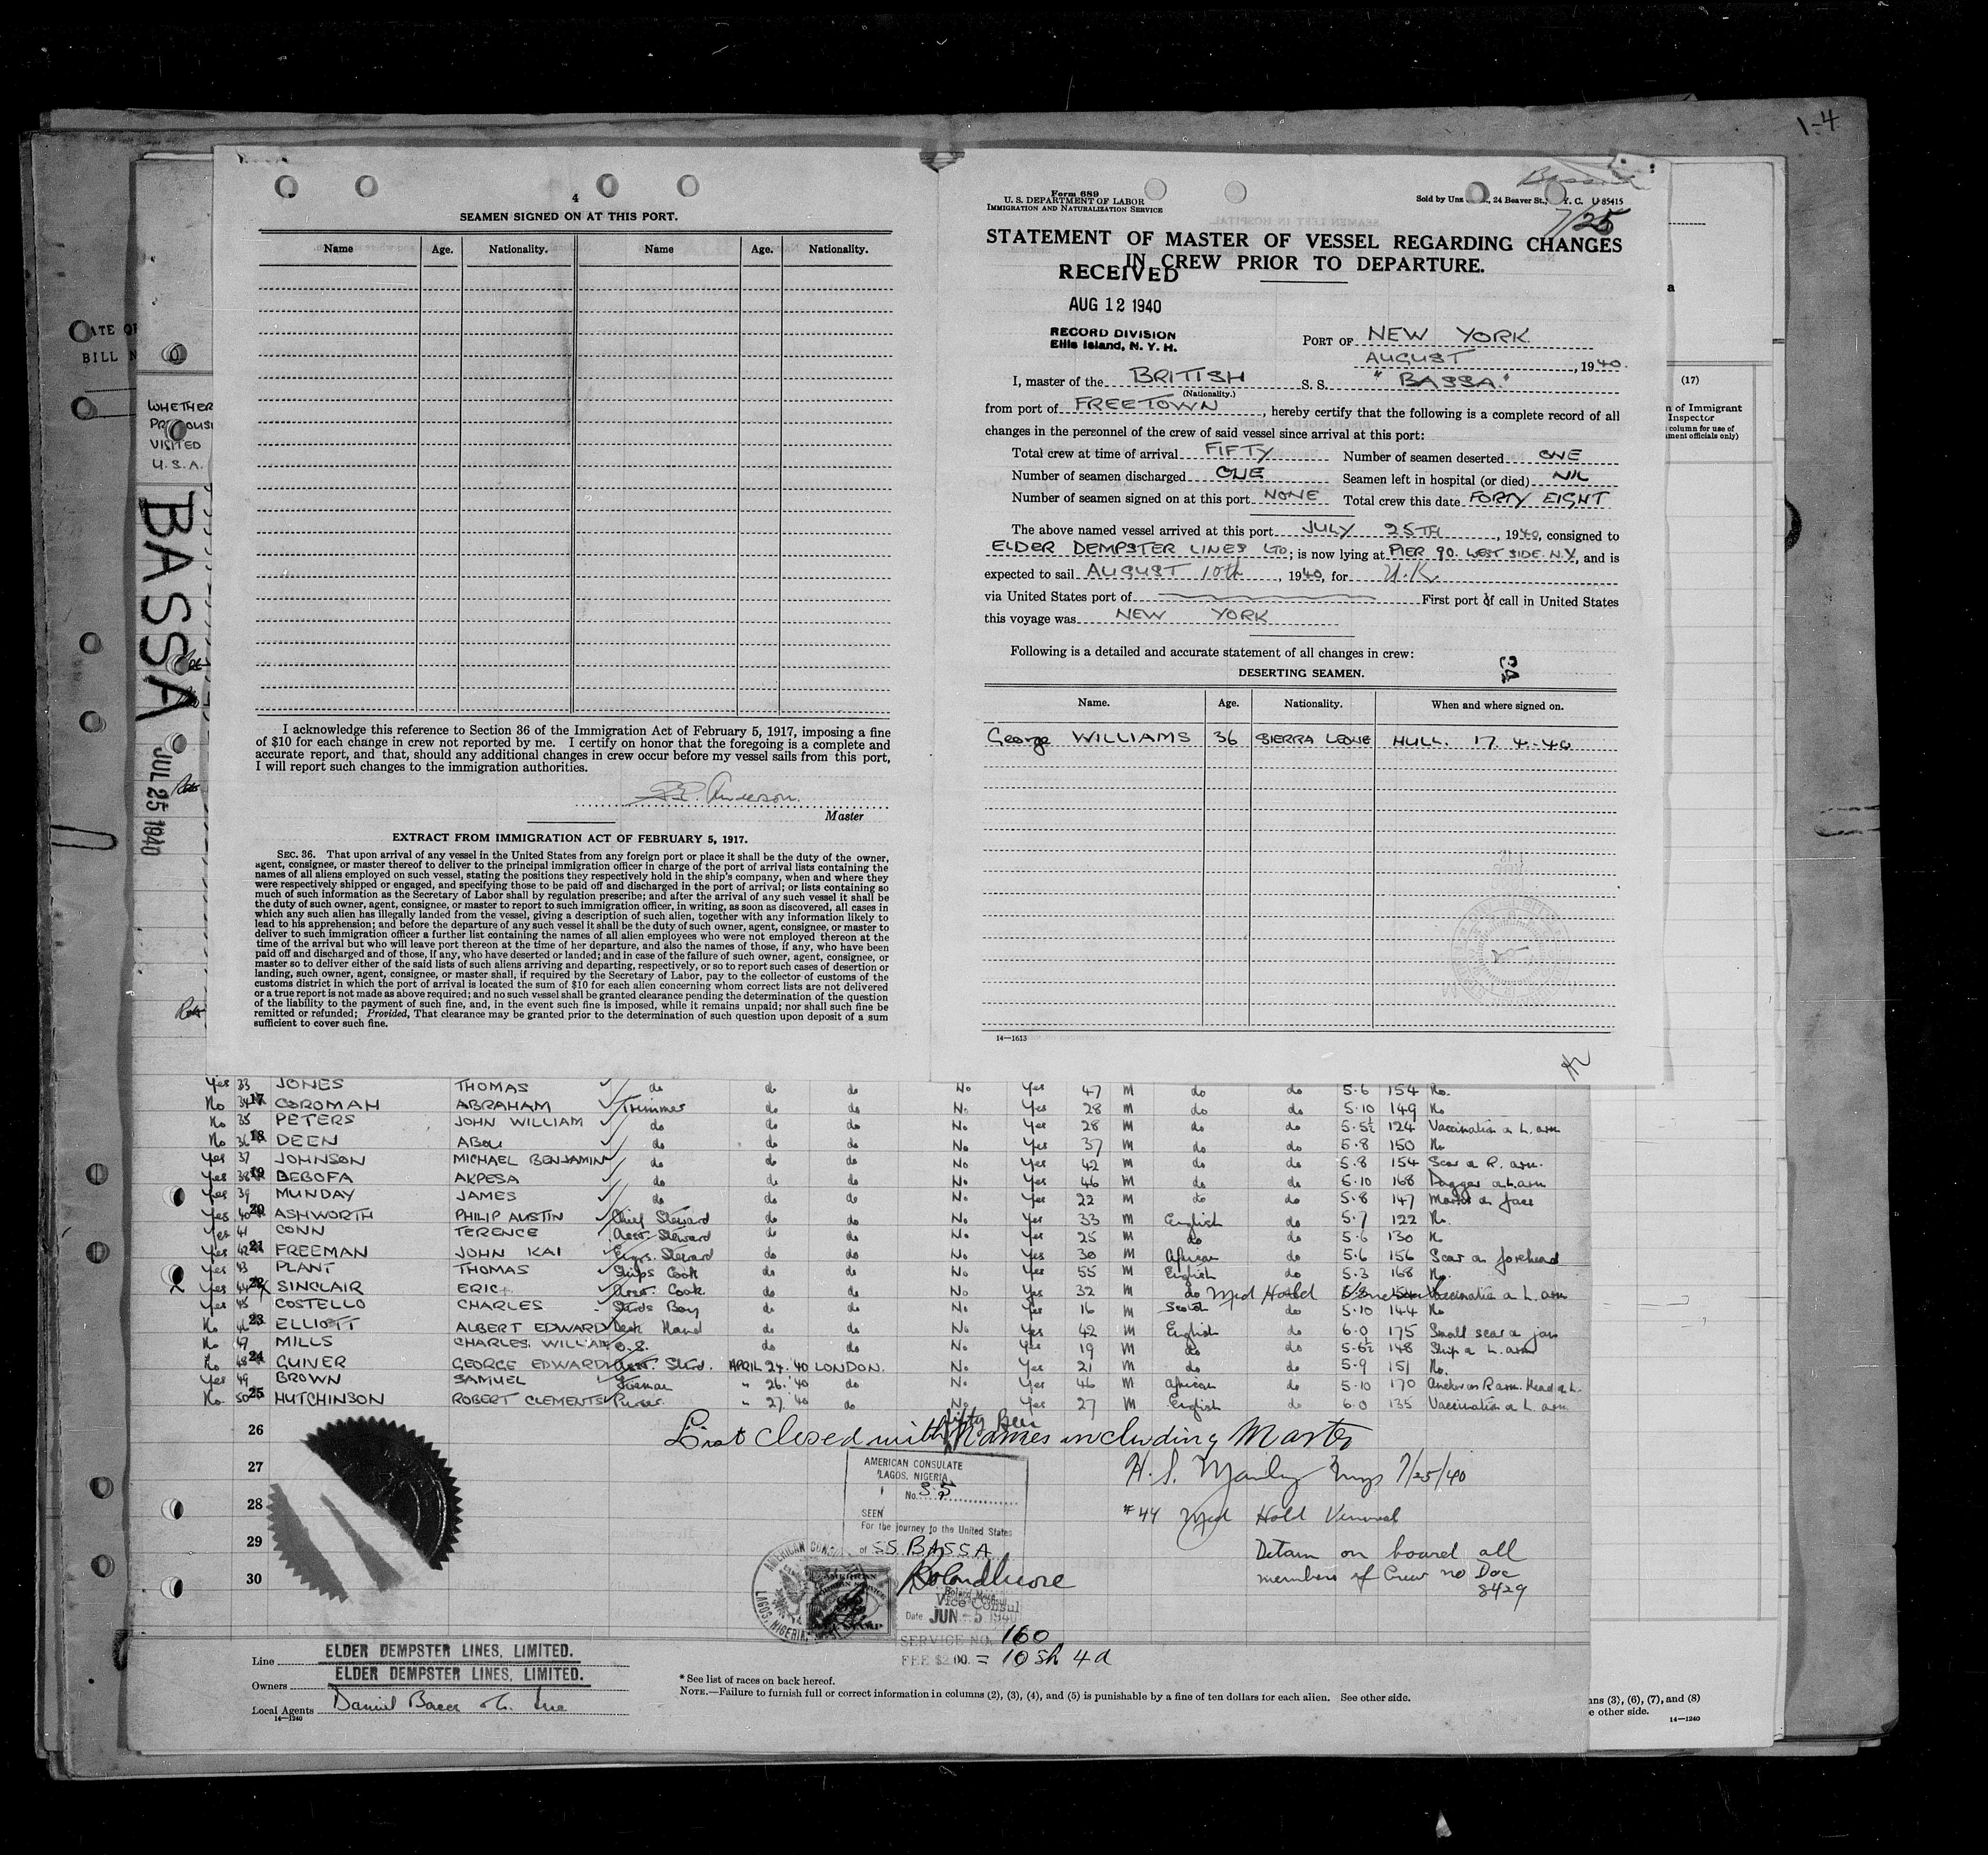 1-4
4
SEAMEN SIGNED ON AT THIS PORT.
Name Age. Nationality. Name Age. Nationality.
I acknowledge this reference to Section 36 of the Immigration Act of February 5, 1917, imposing a fine
of $10 for each change in crew not reported by me. I certify on honor that the foregoing is a complete and
accurate report, and that, should any additional changes in crew occur before my vessel sails from this port,
I will report such changes to the immigration authorities.
Anderson.
Master
EXTRACT FROM IMMIGRATION ACT OF FEBRUARY 5, 1917.
SEC. 36. That upon arrival of any vessel in the United States from any foreign port or place it shall be the duty of the owner,
agent, consignee, or master thereof to deliver to the principal immigration officer in charge of the port of arrival lists containing the
names of all aliens employed on such vessel, stating the positions they respectively hold in the ship's company, when and where they
were respectively shipped or engaged, and specifying those to be paid off and discharged in the port of arrival; or lists containing so
much of such information as the Secretary of Labor shall by regulation prescribe; and after the arrival of any such vessel it shall be
the duty of such owner, agent, consignee, or master to report to such immigration officer, in writing, as soon as discovered, all cases in
which any such alien has illegally landed from the vessel, giving a description of such alien, together with any information likely to
lead to his apprehension; and before the departure of any such vessel it shall be the duty of such owner, agent, consignee, or master to
deliver to such immigration officer a further list containing the names of all alien employees who were not employed thereon at the
time of the arrival but who will leave port thereon at the time of her departure, and also the names of those, if any, who have been
paid off and discharged and of those, if any, who have deserted or landed; and in case of the failure of such owner, agent, consignee, or
master so to deliver either of the said lists of such aliens arriving and departing, respectively, or so to report such cases of desertion or
landing, such owner, agent, consignee, or master shall, if required by the Secretary of Labor, pay to the collector of customs of the
customs district in which the port of arrival is located the sum of $10 for each alien concerning whom correct lists are not delivered
or a true report is not made as above required; and no such vessel shall be granted clearance pending the determination of the question
of the liability to the payment of such fine, and, in the event such fine is imposed, while it remains unpaid; nor shall such fine be
remitted or refunded; Provided, That clearance may be granted prior to the determination of such question upon deposit of a sum
sufficient to cover such fine.
Form 689
U. S. DEPARTMENT OF LABOR
IMMIGRATION AND NATURALIZATION SERVICE
Sold by Unz 24 Beaver St., Y. C. U 85415
Bassa
7/25
STATEMENT OF MASTER OF VESSEL REGARDING CHANGES
IN CREW PRIOR TO DEPARTURE.
RECEIVED
AUG 12 1940
RECORD DIVISION
Ellis Island, N. Y. H.
PORT OF NEW YORK
AUGUST, 1940.
I, master of the BRITISH S. S. "BASSA."
(Nationality.)
from port of FREETOWN, hereby certify that the following is a complete record of all
changes in the personnel of the crew of said vessel since arrival at this port:
Total crew at time of arrival FIFTY Number of seamen deserted ONE
Number of seamen discharged ONE Seamen left in hospital (or died) NIL
Number of seamen signed on at this port NONE Total crew this date FORTY EIGHT
The above named vessel arrived at this port JULY 25TH, 1940, consigned to
ELDER DEMPSTER LINES LTD; is now lying at PIER 90. WEST SIDE. N.Y, and is
expected to sail AUGUST 10th, 1940, for U.K.
via United States port of First port of call in United States
this voyage was NEW YORK
Following is a detailed and accurate statement of all changes in crew:
DESERTING SEAMEN.
Name. Age. Nationality. When and where signed on.
George WILLIAMS 36 SIERRA LEONE HULL. 17 4-40
14—1613
WHETHER
VISITED
U.S.A.
BASSA
JUL 25 1940
BILL
(17)
of Immigrant
Inspector
column for use of
officials only)
Yes 33 JONES THOMAS do do do No Yes 47 M do do 5.6 154 No.
No 34 17 COROMAH ABRAHAM Trimmer do do No Yes 28 M do do 5.10 149 No
No 35 PETERS JOHN WILLIAM do do do No Yes 28 M do do 5.5½ 124 Vaccination on L. arm
No 36 18 DEEN ABOU do do do No Yes 37 M do do 5.8 150 No
Yes 37 JOHNSON MICHAEL BENJAMIN do do do No Yes 42 M do do 5.8 154 Scar on R. arm.
Yes 38 19 BEBOFA AKPESA do do do No Yes 46 M do do 5.10 168 Dagger on L. arm
Yes 39 MUNDAY JAMES do do do No Yes 22 M do do 5.8 147 Marks on face
Yes 40 20 ASHWORTH PHILIP AUSTIN Chief Steward do do No Yes 33 M English do 5.7 122 No.
Yes 41 CONN TERENCE Asst. Steward do do No Yes 25 M do do 5.6 130 No
Yes 42 21 FREEMAN JOHN KAI Engrs. Steward do do No Yes 30 M African do 5.6 156 Scar on forehead
Yes 43 PLANT THOMAS Ships Cook do do No Yes 55 M English do 5.3 168 No.
X Yes 44 22 SINCLAIR ERIC Asst. Cook do do No Yes 32 M do Med Hold Vaccination on L. arm
Yes 45 COSTELLO CHARLES Stwds Boy do do No Yes 16 M Scotch do 5.10 144 No
No 46 23 ELLIOTT ALBERT EDWARD Deck Hand do do No Yes 42 M English do 6.0 175 Small scar on jaw
No 47 MILLS CHARLES WILLIAM O.S. do do No Yes 19 M do do 5.6½ 148 Ship on L. arm
No 48 24 GUIVER GEORGE EDWARD Asst. Stwd. APRIL 24. '40 LONDON. No Yes 21 M do do 5.9 151 No.
Yes 49 BROWN SAMUEL Fireman " 26. '40 do No Yes 46 M African do 5.10 170 Anchor on R arm. Head on L.
No. 50 25 HUTCHINSON ROBERT CLEMENTS Purser " 27. '40 do No Yes 27 M English do 6.0 135 Vaccination on L. arm
26
27
28
29
30
List closed with fifty names including Master
7/25/40
#44 Med Hold Venereal
Detain on board all
members of Crew no Doc
8429
AMERICAN CONSULATE
LAGOS, NIGERIA
No. 35
SEEN
For the journey to the United States
of SS. BASSA
Vice Consul
Date JUN - 5 1940
SERVICE NO. 160
FEE $2.00. = 10 sh 4d
Line ELDER DEMPSTER LINES, LIMITED.
Owners ELDER DEMPSTER LINES, LIMITED.
Local Agents Daniel Bacon Inc
14—1240
* See list of races on back hereof.
NOTE.—Failure to furnish full or correct information in columns (2), (3), (4), and (5) is punishable by a fine of ten dollars for each alien. See other side.
(3), (6), (7), and (8)
other side.
14—1240